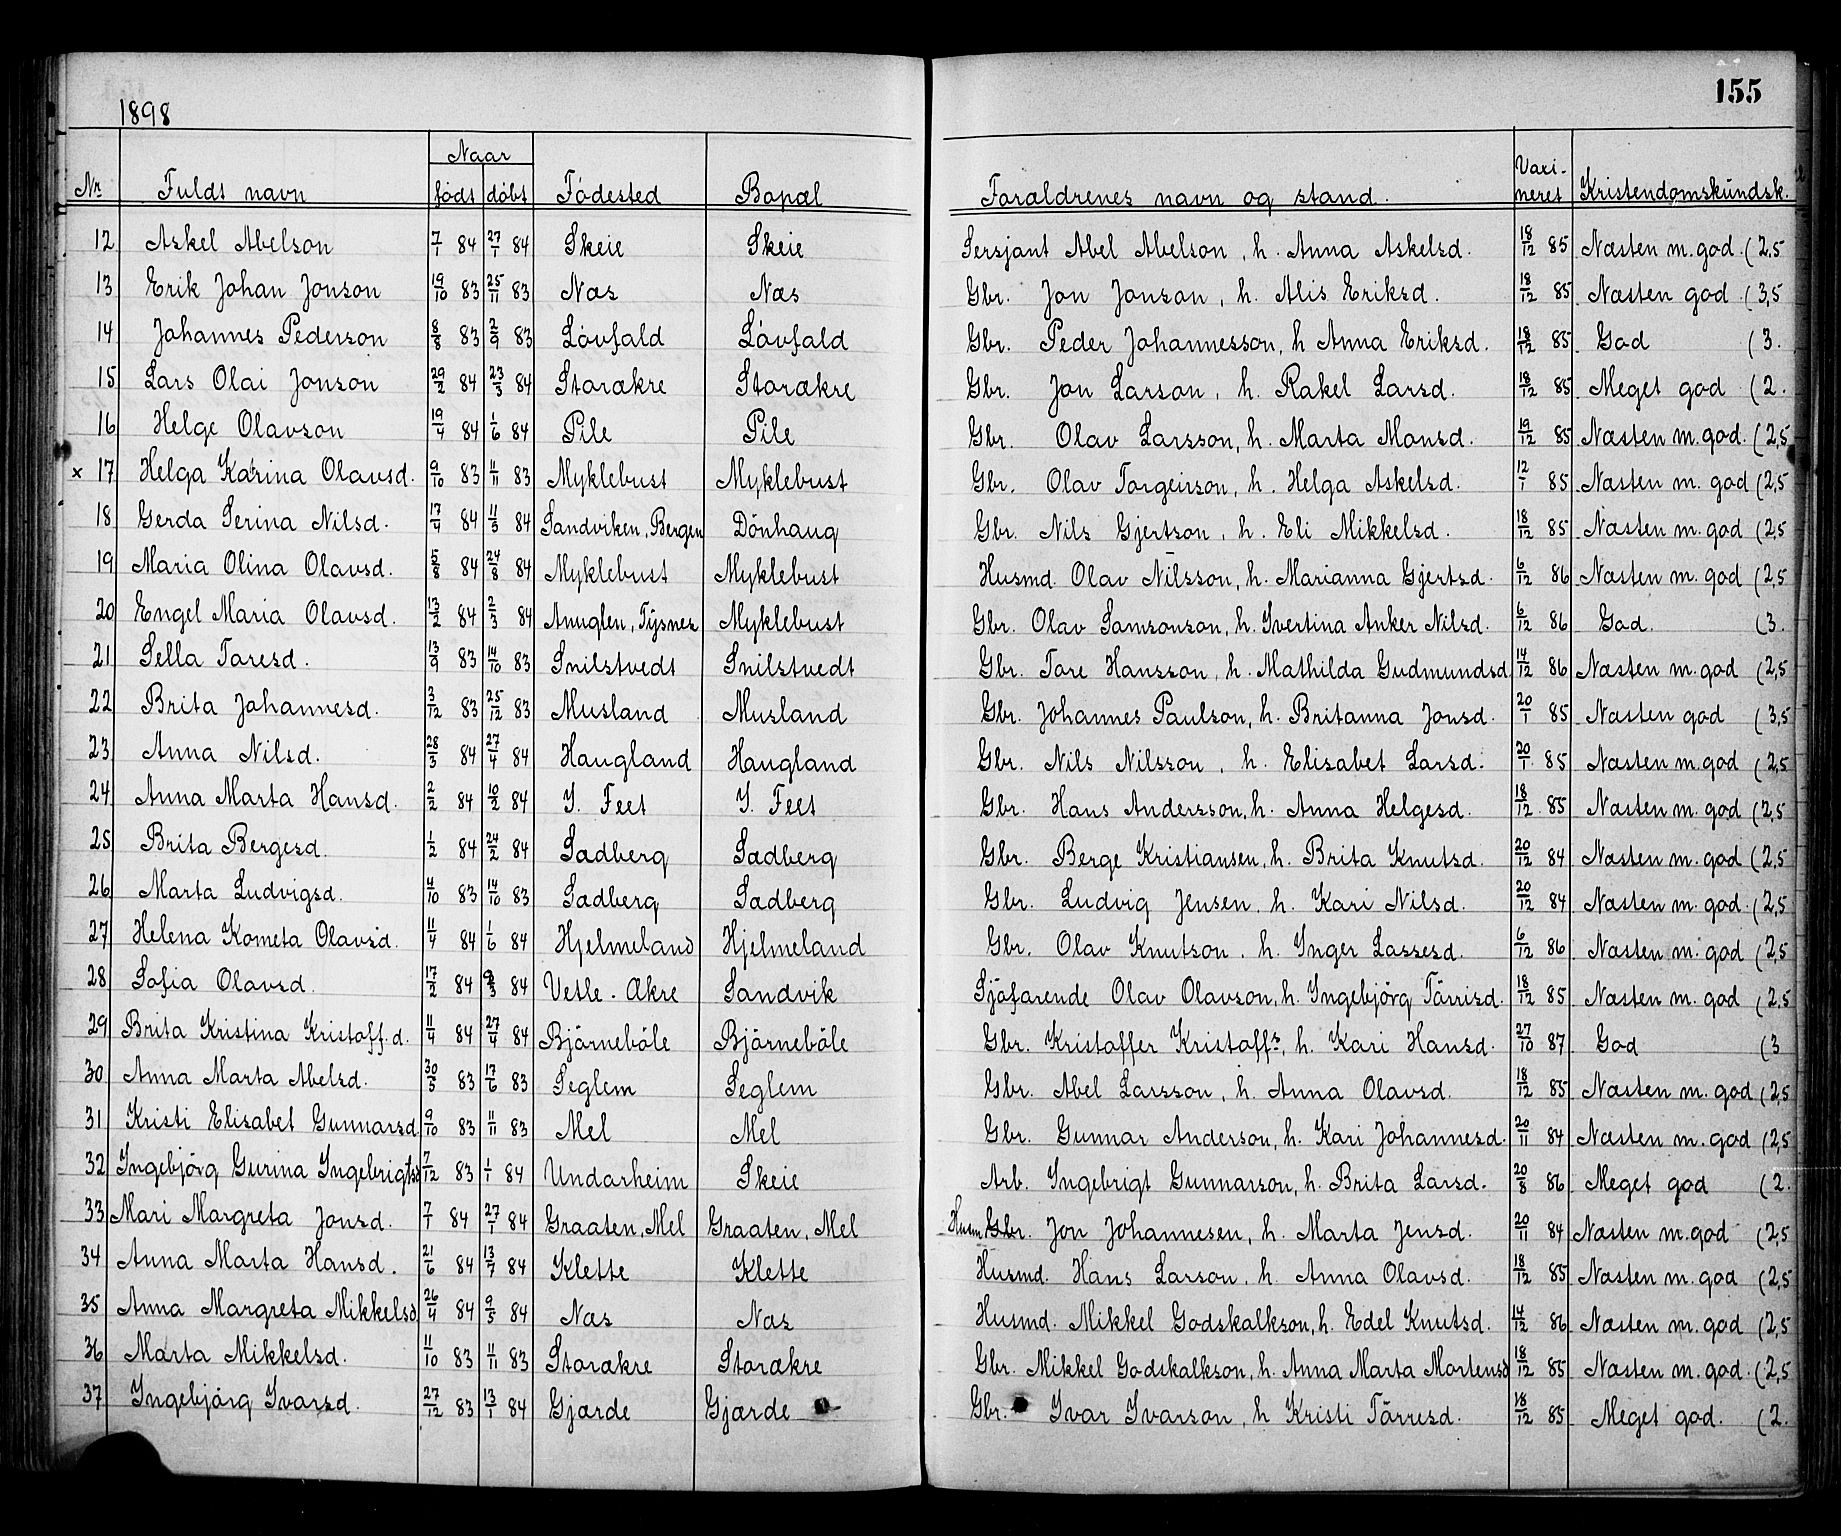 155
1898
Nr. Fuldt navn Naar født døbt Fødested Bopæl Forældrenes navn og stand. Vaxineret Kristendomskundsk.
12 Askel Abelson 7/1 84 27/1 84 Skeie Skeie Sersjant Abel Abelson, h. Anna Askelsd. 18/12 85 Næsten m. god. (2,5
13 Erik Johan Jonson 19/10 83 25/11 83 Næs Næs Gbr. Jon Jonson, h. Alis Eriksd. 18/12 85 Næsten god (3,5
14 Johannes Pederson 8/8 83 2/9 83 Løvfald Løvfald Gbr. Peder Johannesson, h Anna Eriksd. 18/12 85 God (3.
15 Lars Olai Jonson 29/2 84 23/3 84 Storækre Storækre Gbr. Jon Larson, h. Rakel Larsd. 18/12 85 Meget god (2.
16 Helge Olavson 19/4 84 1/6 84 Pile Pile Gbr. Olav Larsson, h. Marta Monsd. 19/12 85 Næsten m. god. (2,5
x 17 Helga Katrina Olavsd. 9/10 83 11/11 83 Myklebust Myklebust Gbr. Olav Torgeirson, h. Helga Askelsd. 12/1 85 Næsten m. god (2,5
18 Gerda Serina Nilsd. 17/4 84 11/5 84 Sandviken, Bergen Dönhaug Gbr. Nils Gjertson, h. Eli Mikkelsd. 18/12 85 Næsten m. god (2,5
19 Maria Olina Olavsd. 5/8 84 24/8 84 Myklebust Myklebust Husmd. Olav Nilsson, h. Marianna Gjertsd. 6/12 86 Næsten m. god (2,5
20 Engel Maria Olavsd. 13/2 84 2/3 84 Anuglen, Tysnes Myklebust Gbr. Olav Samsonson, h. Ivertina Anker Nilsd. 6/12 86 God. (3.
21 Sella Toresd. 13/9 83 14/10 83 Snilstvedt Snilstvedt Gbr. Tore Hansson, h. Mathilda Gudmundsd 14/12 86 Næsten m. god (2,5
22 Brita Johannesd. 3/12 83 25/12 83 Musland Musland Gbr. Johannes Paulson, h. Britanna Jonsd. 20/1 85 Næsten god (3,5
23 Anna Nilsd. 28/3 84 27/4 84 Haugland Haugland Gbr. Nils Nilsson, h. Elisabet Larsd. 20/1 85 Næsten m. god (2,5
24 Anna Marta Hansd. 2/2 84 10/2 84 Y. Feet Y. Feet Gbr. Hans Andersson, h. Anna Helgesd. 18/12 85 Næsten m. god (2,5
25 Brita Bergesd. 1/2 84 24/2 84 Sædberg Sædberg Gbr. Berge Kristiansen, h. Brita Knutsd. 20/12 84 Næsten m. god (2,5
26 Marta Ludvigsd. 4/10 83 14/10 83 Sædberg Sædberg Gbr. Ludvig Jensen, h. Kari Nilsd. 20/12 84 Næsten m. god (2,5
27 Helena Kometa Olavsd. 11/4 84 1/6 84 Hjelmeland Hjelmeland Gbr. Olav Knutson, h. Inger Lassesd. 6/12 86 Næsten m. god (2,5
28 Sofia Olavsd. 17/2 84 9/3 84 Vetle-Ækre Sandvik Sjøfarende Olav Olavson, h. Ingebjörg Törrisd. 18/12 85 Næsten m. god (2,5
29 Brita Kristina Kristoff.d. 11/4 84 27/4 84 Björneböle Björneböle Gbr. Kristoffer Kristoffs., h. Kari Hansd. 27/10 87 God (3
30 Anna Marta Abelsd. 30/5 83 17/6 83 Seglem Seglem Gbr. Abel Larsson, h. Anna Olavsd. 18/12 85 Næsten m. god (2,5
31 Kristi Elisabet Gunnarsd 9/10 83 11/11 83 Mel Mel Gbr. Gunnar Anderson, h. Kari Johannesd. 20/11 84 Næsten m. god (2,5
32 Ingebjörg Gurina Ingebrigtsd 7/12 83 1/1 84 Undarheim Skeie Arb. Ingebrigt Gunnarson, h. Brita Larsd. 20/8 86 Meget god (2.
33 Mari Margreta Jonsd. 7/1 84 27/1 84 Graaten, Mel Graaten, Mel Husm Gbr. Jon Johannesen, h. Marta Jensd. 20/11 84 Næsten m. god (2,5
34 Anna Marta Hansd. 21/6 84 13/7 84 Klette Klette Husmd. Hans Larson, h. Anna Olavsd. 18/12 85 Næsten m. god (2,5
35 Anna Margreta Mikkelsd 26/4 84 9/5 84 Næs Næs Husmd. Mikkel Godskalkson, h. Edel Knutsd. 14/12 86 Næsten m. god (2,5
36 Marta Mikkelsd. 11/10 83 11/11 83 Storækre Storækre Gbr. Mikkel Godskalkson, h. Anna Marta Mortensd 18/12 85 Næsten m. god. (2,5
37 Ingebjörg Ivarsd. 27/12 83 13/1 84 Gjærde Gjærde Gbr. Ivar Ivarson, h Kristi Törresd. 18/12 85 Meget god. (2.